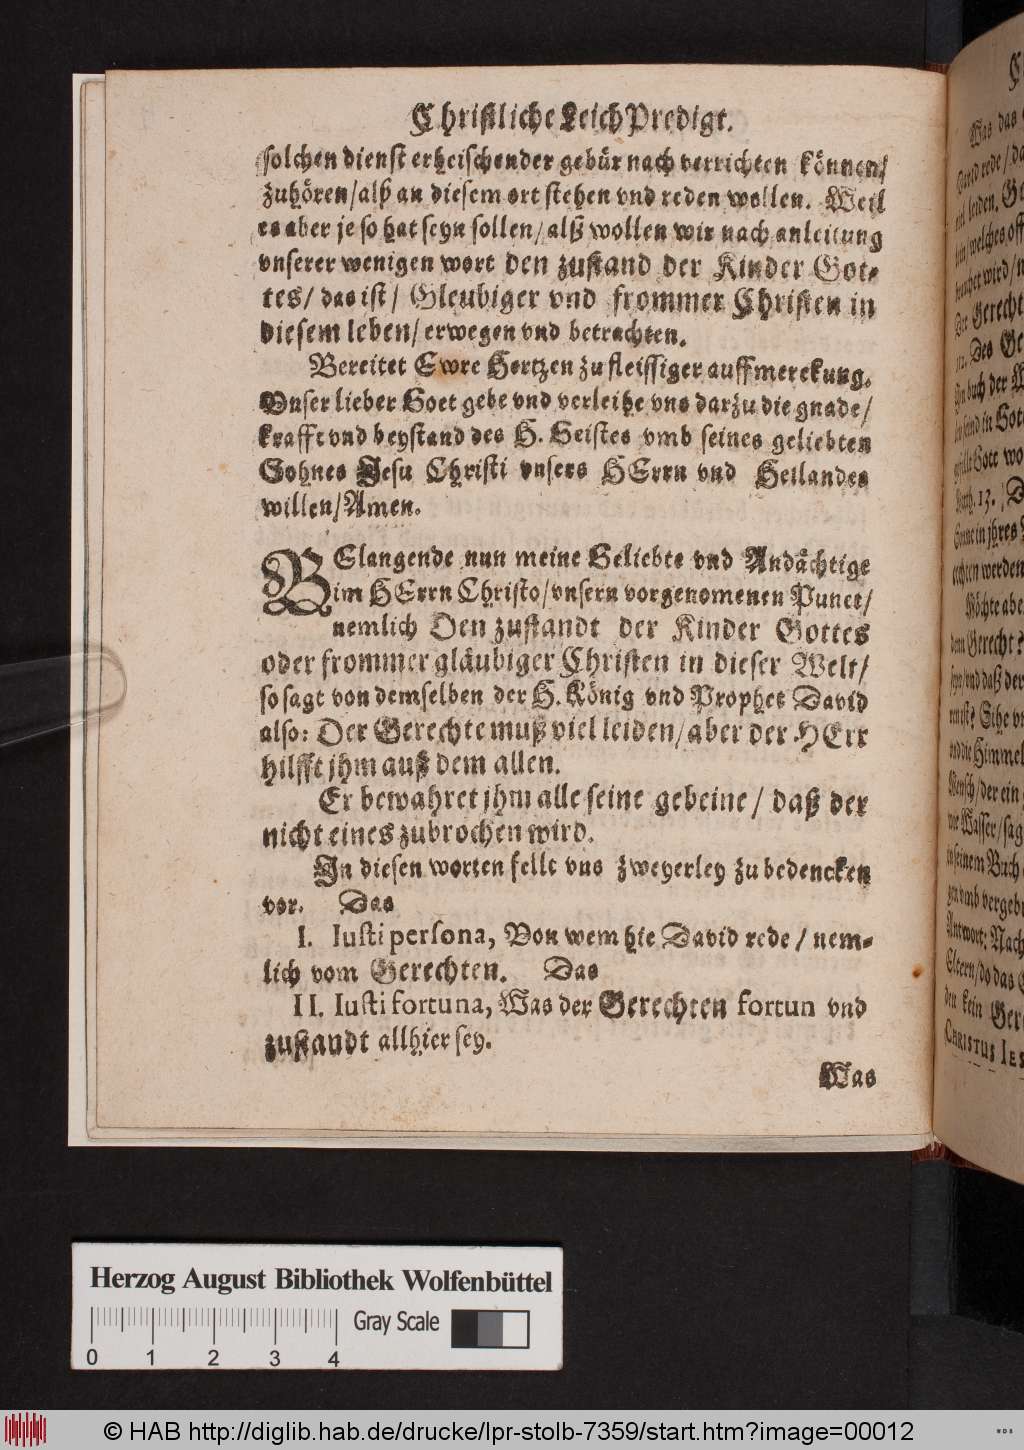 Christliche LeichPredigt.
solchen dienst erheischender gebür nach verrichten können/
zuhören/ alß an diesem ort stehen vnd reden wollen. Weil
es aber je so hat seyn sollen/ alß wollen wir nach anleitung
vnserer wenigen wort den zustand der Kinder Got-
tes/ das ist/ Gleubiger vnd frommer Christen in
diesem leben/ erwegen vnd betrachten.
Bereitet Ewre Hertzen zu fleissiger auffmerckung.
Vnser lieber Gott gebe vnd verleihe vns darzu die gnade/
krafft vnd beystand des H. Geistes vmb seines geliebten
Sohnes Jesu Christi vnsers HErrn vnd Heilandes
willen/ Amen.
BElangende nun meine Geliebte vnd Andächtige
im HErrn Christo/ vnsern vorgenomenen Punct/
nemlich Den zustandt der Kinder Gottes
oder frommer gläubiger Christen in dieser Welt/
so sagt von demselben der H. König vnd Prophet David
also: Der Gerechte muß viel leiden/ aber der HErr
hilfft jhm auß dem allen.
Er bewahret jhm alle seine gebeine/ daß der
nicht eines zubrochen wird.
In diesen worten fellt vns zweyerley zu bedencken
vor. Das
I. Iusti persona, Von wem hie David rede/ nem-
lich vom Gerechten. Das
II. Iusti fortuna, Was der Gerechten fortun vnd
zustandt allhier sey.
Was
Was das
David rede/
viel leiden.
welches
wird/
Der Gerecht
Des
buch der
sind in
Gott
Matth. 13.
in jhres
werden
Möchte
denn Gerecht?
vnd daß der
Sihe
vnd die Himmel
Mensch/ der ein
wie Wasser/
in seinem Buch
vmb
Antwort: Nach
Eltern/ do das
den kein
CHRISTUS
Herzog August Bibliothek Wolfenbüttel
Gray Scale
0 1 2 3 4
© HAB http://diglib.hab.de/drucke/lpr-stolb-7359/start.htm?image=00012